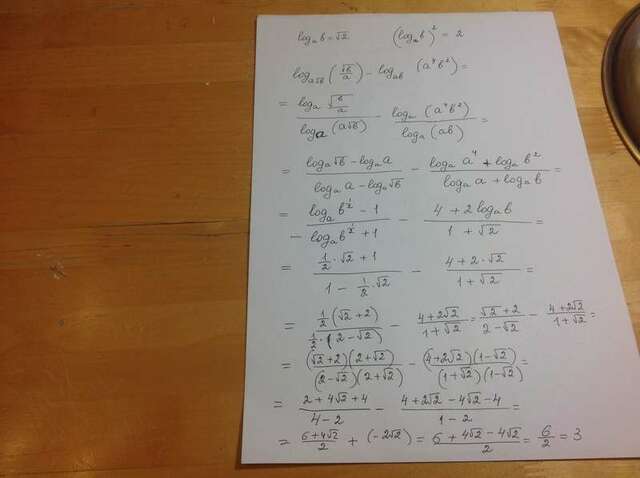 logₐb = √2 (logₐb)² = 2
log_{a√b}(√b/a) − log_{ab}(a⁴b²) =
= logₐ√(b/a) / logₐ(a√b) − logₐ(a⁴b²) / logₐ(ab) =
= (logₐ√b − logₐa) / (logₐa − logₐ√b) − (logₐa⁴ + logₐb²) / (logₐa + logₐb) =
= (logₐb^½ − 1) / (−logₐb^½ + 1) − (4 + 2logₐb) / (1 + √2) =
= (½·√2 + 1) / (1 − ½·√2) − (4 + 2·√2) / (1 + √2) =
= ½(√2 + 2) / ½·(2 − √2) − (4 + 2√2) / (1 + √2) = (√2 + 2) / (2 − √2) − (4 + 2√2) / (1 + √2) =
= (√2 + 2)(2 + √2) / (2 − √2)(2 + √2) − (4 + 2√2)(1 − √2) / (1 + √2)(1 − √2) =
= (2 + 4√2 + 4) / (4 − 2) − (4 + 2√2 − 4√2 − 4) / (1 − 2) =
= (6 + 4√2) / 2 + (−2√2) = (6 + 4√2 − 4√2) / 2 = 6/2 = 3